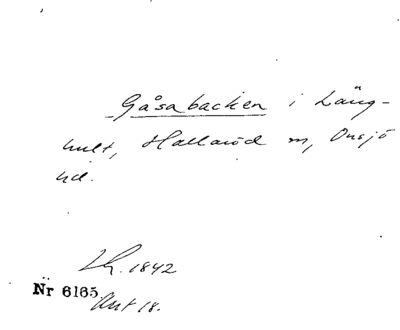 Gåsabacken i Läng-
hult, Hallaröd sn, Onsjö
hd.
Lh. 1842
Nr 6165
Ant 18.